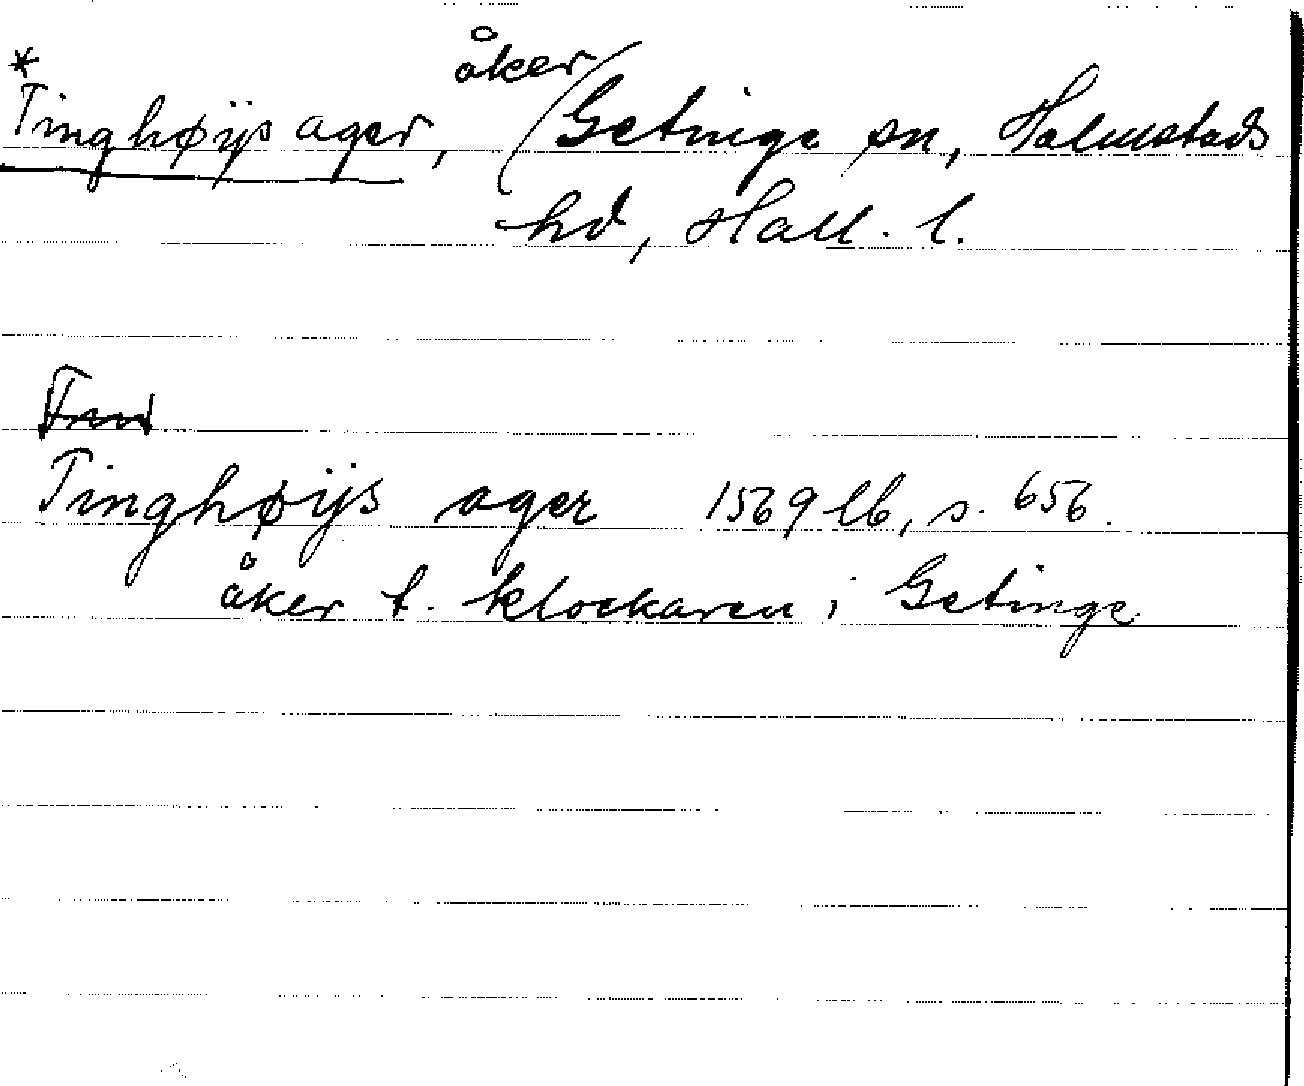 * åker
Tinghøÿs ager, / Getinge sn, Halmstads
hd, Hall. l.
Tinghøÿs ager 1569 lb, s. 656.
åker t. klockaren i Getinge